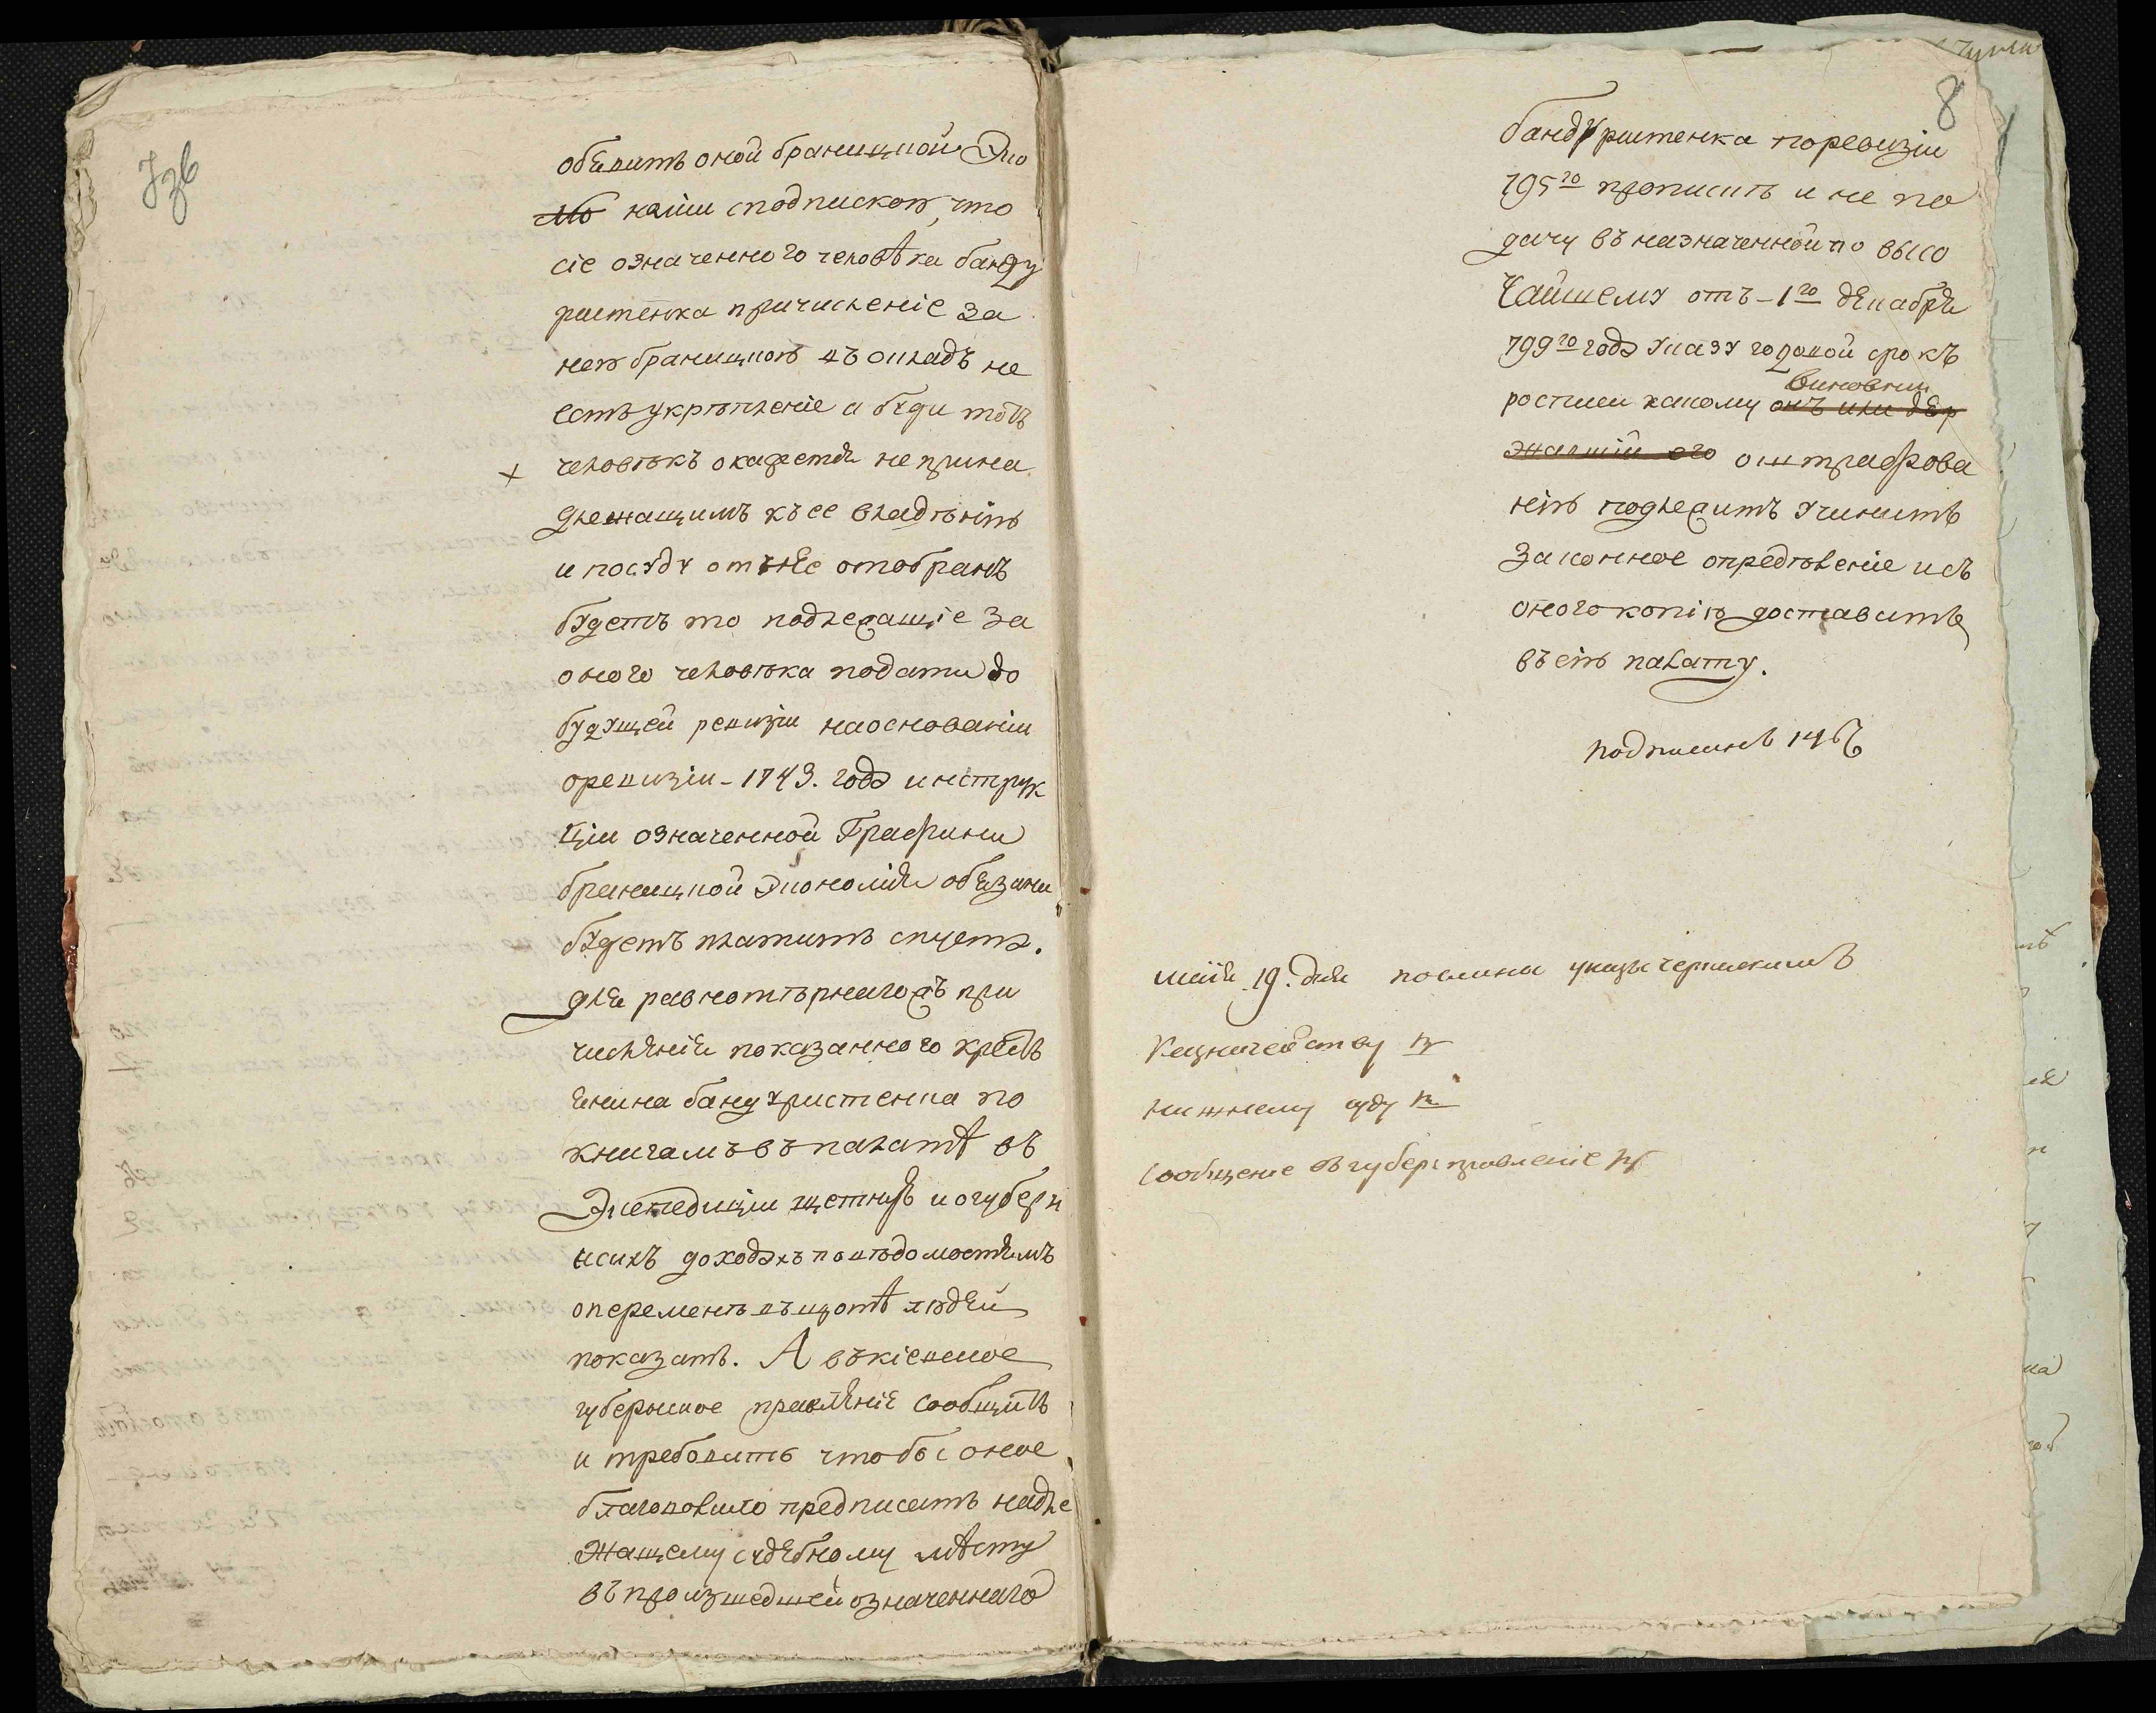 7зв
объявить оной браницкой Эко
мо номіи сподпискою, что
сіе означенного человѣка банду
ристенка причисленіе за
нею браницкою въ окладъ не
есть укрѣпленіе а буди тотъ
+ человѣкъ окажется не прина
длежащимъ къ ее владѣнію
и посуду отънее отобранъ
будетъ то подлежащіе за
оного человѣка подати до
будущей ревизіи наоснованіи
оревизіи - 1743. года инструк
ціи означенной Графини
браницкой Экономія обязана
будетъ платить спустя.
для равномѣрнагожъ при
численія показанного крестъ
янина бандуристенка по
книгамъ въ палатѣ въ
Экспедиціи щетныхъ и о губерн
скихъ доходахъ повѣдомостямъ
о перемене въ щотѣ людей
показать. А въ кіевское
губернское правленіе сообщить
и требовать чтобы оное
благоволило предписать надле
жащему судебному мѣсту
въ произшедшей означеннаго
8
бандуристенка поревизіи
795го прописить и не по
дачу въ назначенной по высо
Чайшему отъ - 1го декабря
799го года указу годовой срокъ
виновнии
роспиеи какому онъ или дер
жавшій его оштрафова
нію подлежитъ учинить
законное определеніе и съ
оного копію доставить
въ сію палату.
подписанъ 14
маія 19. дня посланы указы черкаскимъ
Казначейству
нижнему суду
сообщение въ губерс правление